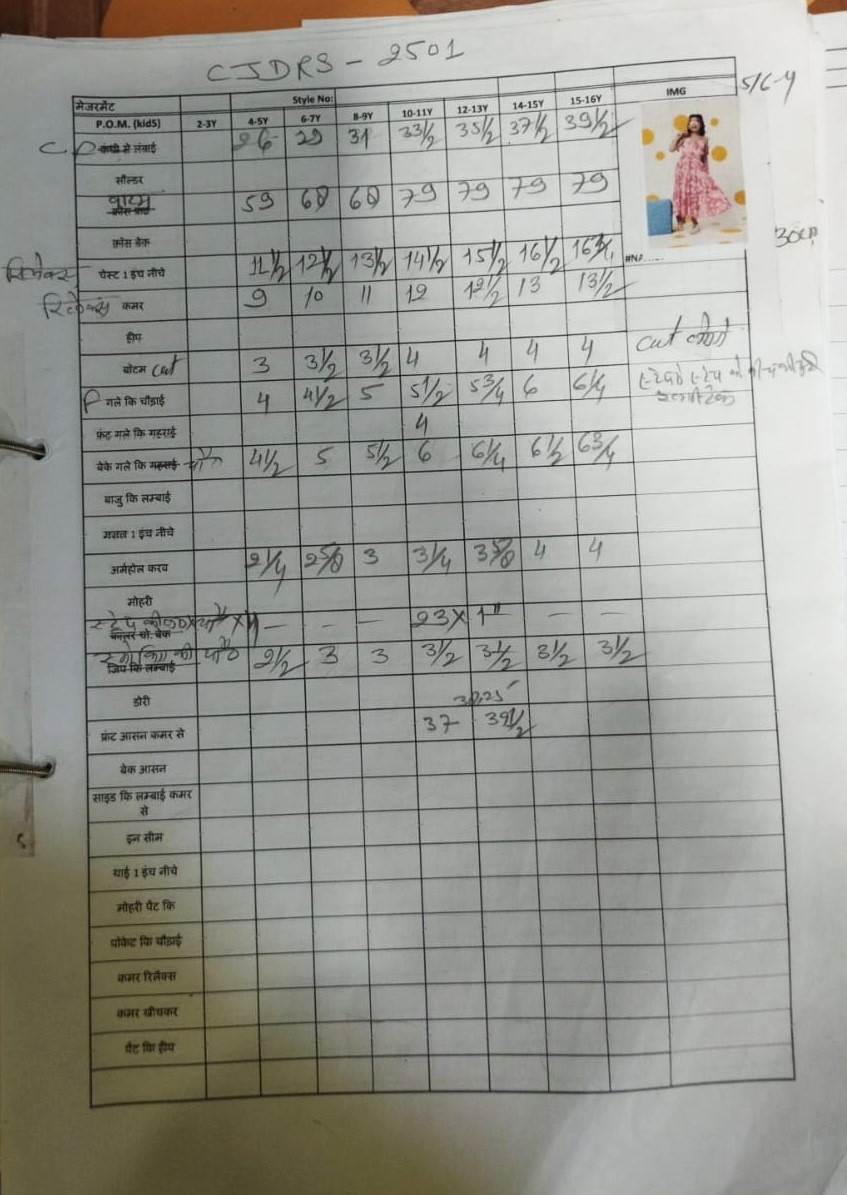 CJDRS - 2501
5/6-4
मेजरमेंट Style No: IMG
P.O.M. (kidS) 2-3Y 4-5Y 6-7Y 8-9Y 10-11Y 12-13Y 14-15Y 15-16Y
C.P से लंबाई 26 29 31 33 1/2 35 1/2 37 1/2 39 1/2
सौल्डर
59 60 60 79 79 79 79
क्रोस बेक
30cm
रिलेक्स चेस्ट 1 इंच नीचे 11 1/2 12 1/2 13 1/2 14 1/2 15 1/2 16 1/2 16 3/4 #N/.....
रिलेक्स कमर 9 10 11 12 12 1/2 13 13 1/2
हीप
बोटम cut 3 3 1/2 3 1/2 4 4 4 4 cut
P गले कि चौड़ाई 4 4 1/2 5 5 1/2 5 3/4 6 6 1/4
फ्रंट गले कि गहराई 4
बेके गले कि गहराई 4 1/2 5 5 1/2 6 6 1/4 6 1/2 6 3/4
बाजु कि लम्बाई
मसल 1 इंच नीचे
अर्महोल करव 2 1/4 2 5/8 3 3 1/4 3 5/8 4 4
मोहरी
— — — 23 x 1" — —
जिप कि लम्बाई 2 1/2 3 3 3 1/2 3 1/2 3 1/2 3 1/2
डोरी
फ्रंट आसन कमर से 37 39 1/2
बेक आसन
साइड कि लम्बाई कमर
से
इन सीम
थाई 1 इंच नीचे
मोहरी पैंट कि
पोकेट कि चौड़ाई
कमर रिलैक्स
कमर खीचकर
पैंट कि हीप